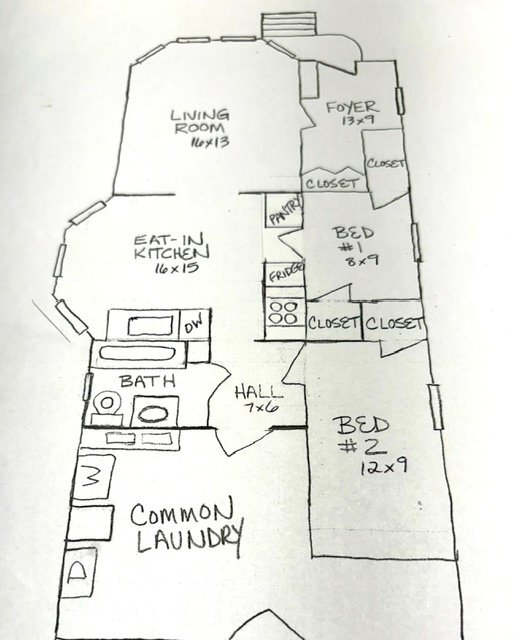 LIVING
ROOM
16x13
FOYER
13x9
CLOSET
CLOSET
PANTRY
EAT-IN
KITCHEN
16x15
BED
#1
8x9
FRIDGE
DW
CLOSET
CLOSET
BATH
HALL
7x6
BED
#2
12x9
W
COMMON
LAUNDRY
D